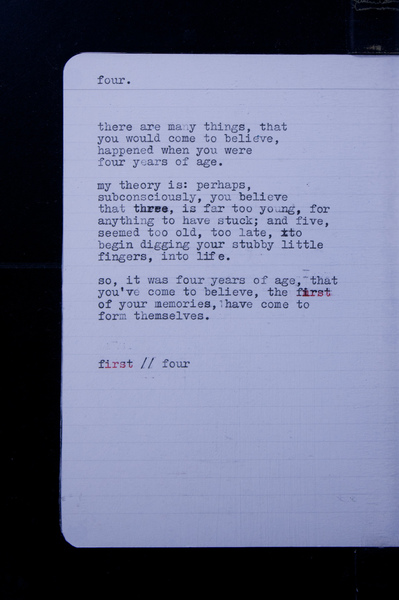 four.
there are many things, that
you would come to believe,
happened when you were
four years of age.
my theory is: perhaps,
subconsciously, you believe
that three, is far too young, for
anything to have stuck; and five,
seemed too old, too late, to
begin digging your stubby little
fingers, into life.
so, it was four years of age, that
you've come to believe, the first
of your memories, have come to
form themselves.
first // four